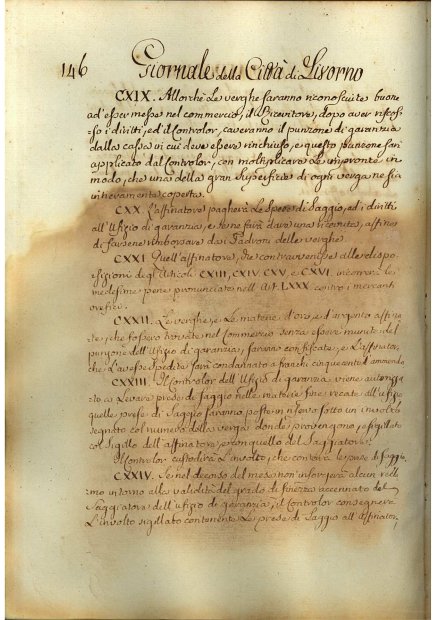 146 Giornale della Città di Livorno
CXIX. Allorchè Le verghe saranno riconosciute buone
ad'esser messe nel commercio, il Ricevitore, dopo aver riscos-
so i diritti, ed il Controlor, caveranno il punzone di garanzia
dalla cassa in cui deve essere rinchiuso, e questo punzone sarà
applicato dal Controlor, con moltiplicare Le impronte in
modo, che una della gran superficie di ogni verga ne sia
interamente coperta.
CXX. L'affinatore pagherà Le Spese di Saggio, ed i diritti
all'Ufizio di garanzia, e se ne farà dare una ricevuta, affine
di farsene rimborsare dai Padroni delle verghe.
CXXI Quell'affinatore, che contravenisse alle dispo-
sizioni degl'Articoli CXIII, CXIV CXV, e CXVI. incorrerà Le
medesime pene pronunciate nell'Art. LXXX. contro i mercanti
orefici.
CXXII. Le verghe, e Le materie d'oro, e d'argento affina-
te, che fossero trovate nel Commercio senza essere munite del
punzone dell'Ufizio di garanzia, saranno confiscate, e L'affinator,
che L'avesse spedite sarà condannato a franchi cinquecento d'amenda
CXXIII. Il Controlor dell'Ufizio di garanzia viene autorizza-
to a Levare prese di saggio nelle materie fine, recate all'ufizio
quelle prese di Saggio saranno poste in riserva sotto un involto
segnato col numero della verga donde provengono, e sigillato
col Sigillo dell'affinatore, e con quello del Saggiatore.
Il Controlor custodirà L'involto, che conterrà Le prese di Saggio
CXXIV. Se nel decorso del mese non insorgerà alcun recla-
mo intorno alla validità del grado di finezza accennato del
Saggiatore dell'ufizio di garanzia, il Controlor consegnerà
L'involto sigillato contenente Le prese di Saggio all'affinator,